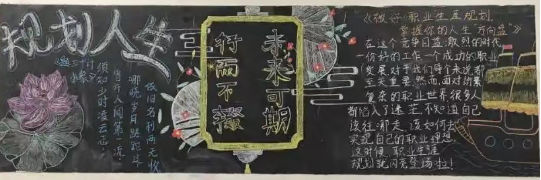 规划人生
须知少时凌云志
曾许人间第一流
哪晓岁月蹉跎过
依旧名利两无收
未来可期
行而不辍
《做好职业生涯规划
掌握你的人生“方向盘”》
在这个竞争日益激烈的时代
一份好的工作一个成功的职业
发展对于我们每个人来说都
至关重要。然而面对纷繁
复杂的职业世界很多人
都陷入了迷茫,不知道自己
该往哪走,该如何去
实现自己的职业理想
这时候,职业生涯
规划就闪亮登场啦!